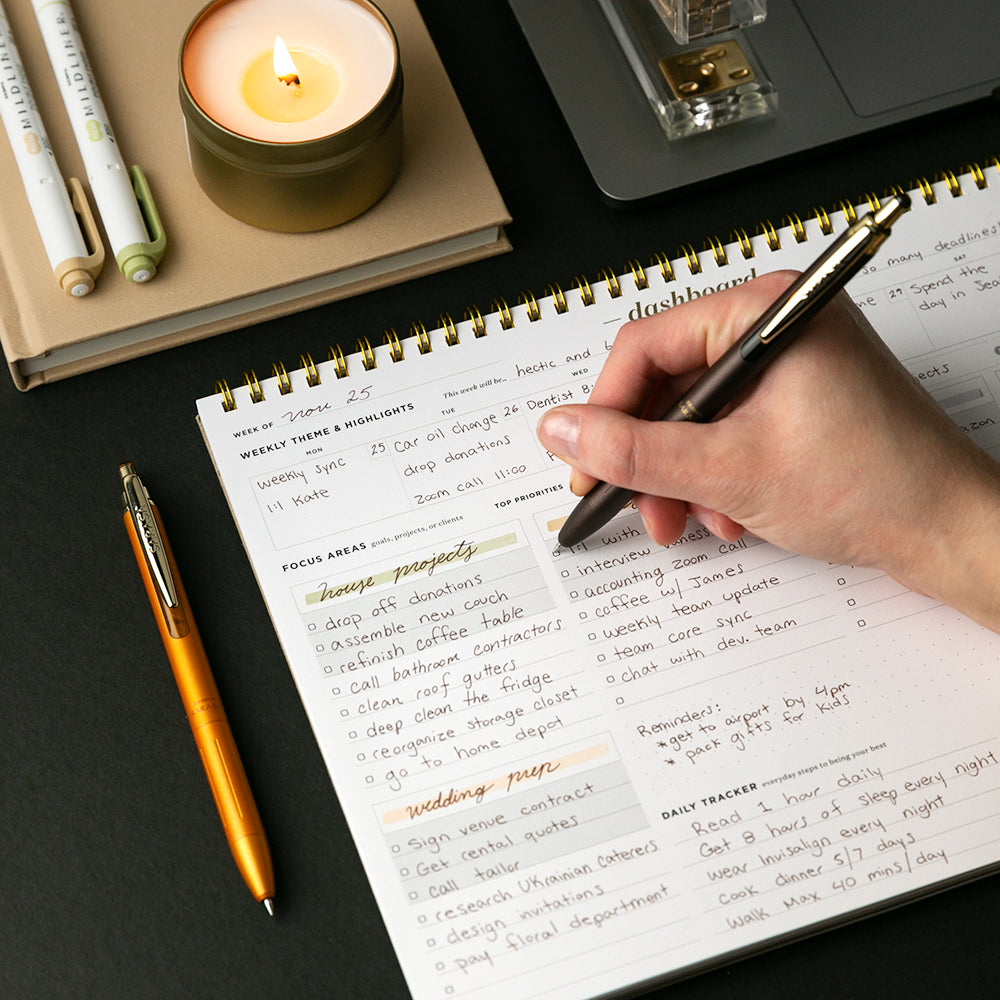 MILDLINER
MILDLINER
dashboard
so many deadlines!
WEEK OF nov 25
This week will be hectic and
WEEKLY THEME & HIGHLIGHTS
MON
25
weekly sync
1:1 Kate
TUE
26
Car oil change
drop donations
zoom call 11:00
WED
Dentist 8:
29
SAT
Spend the
day in
FOCUS AREAS goals, projects, or clients
house projects
drop off donations
assemble new couch
refinish coffee table
call bathroom contractors
clean roof gutters
deep clean the fridge
reorganize storage closet
go to home depot
wedding prep
Sign venue contract
Get rental quotes
call tailor
research Ukrainian caterers
design invitations
pay floral department
TOP PRIORITIES
1:1 with
interview
accounting zoom call
coffee w/ James
weekly team update
team core sync
chat with dev. team
Reminders:
*get to airport by 4pm
* pack gifts for kids
DAILY TRACKER everyday steps to being your best
Read 1 hour daily
Get 8 hours of sleep every night
wear Invisalign every night
cook dinner 5/7 days
Walk Max 40 mins/day